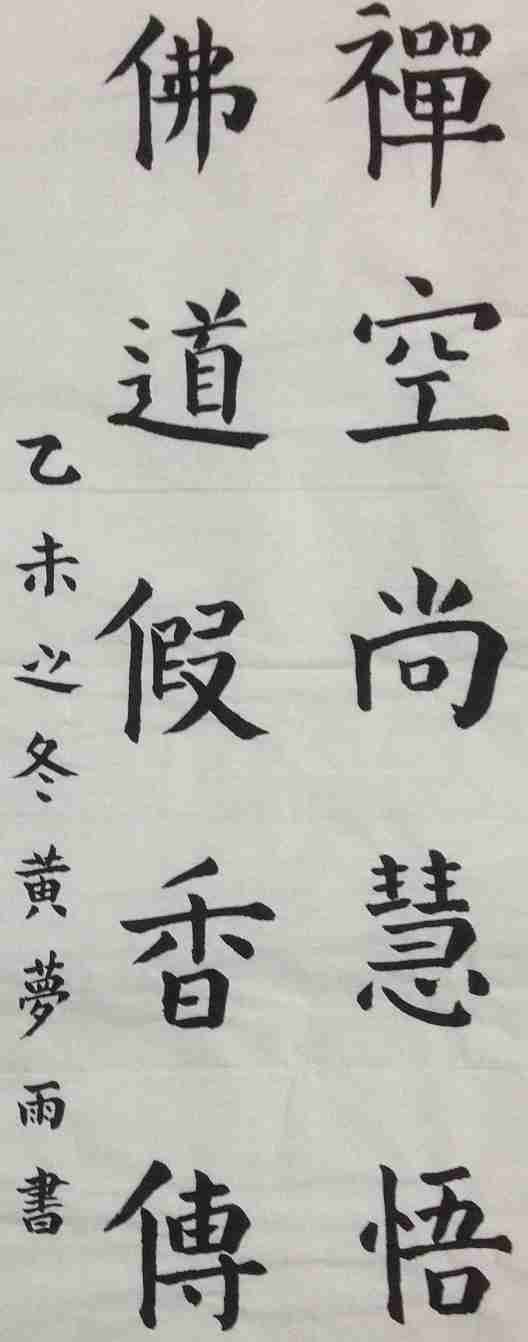 禪空尚慧悟
佛道假香傳
乙未之冬黄夢雨書